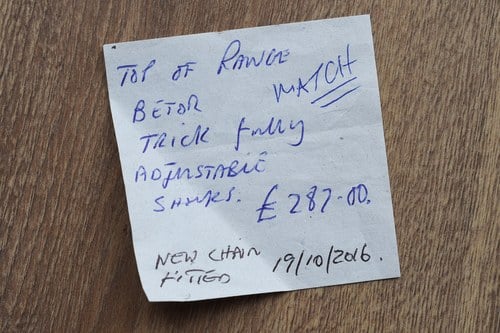 TOP OF RANGE
MATCH
BETOR
TRICK fully
ADJUSTABLE
SHOKS.
£ 287.00.
NEW CHAIN
FITTED
19/10/2016.